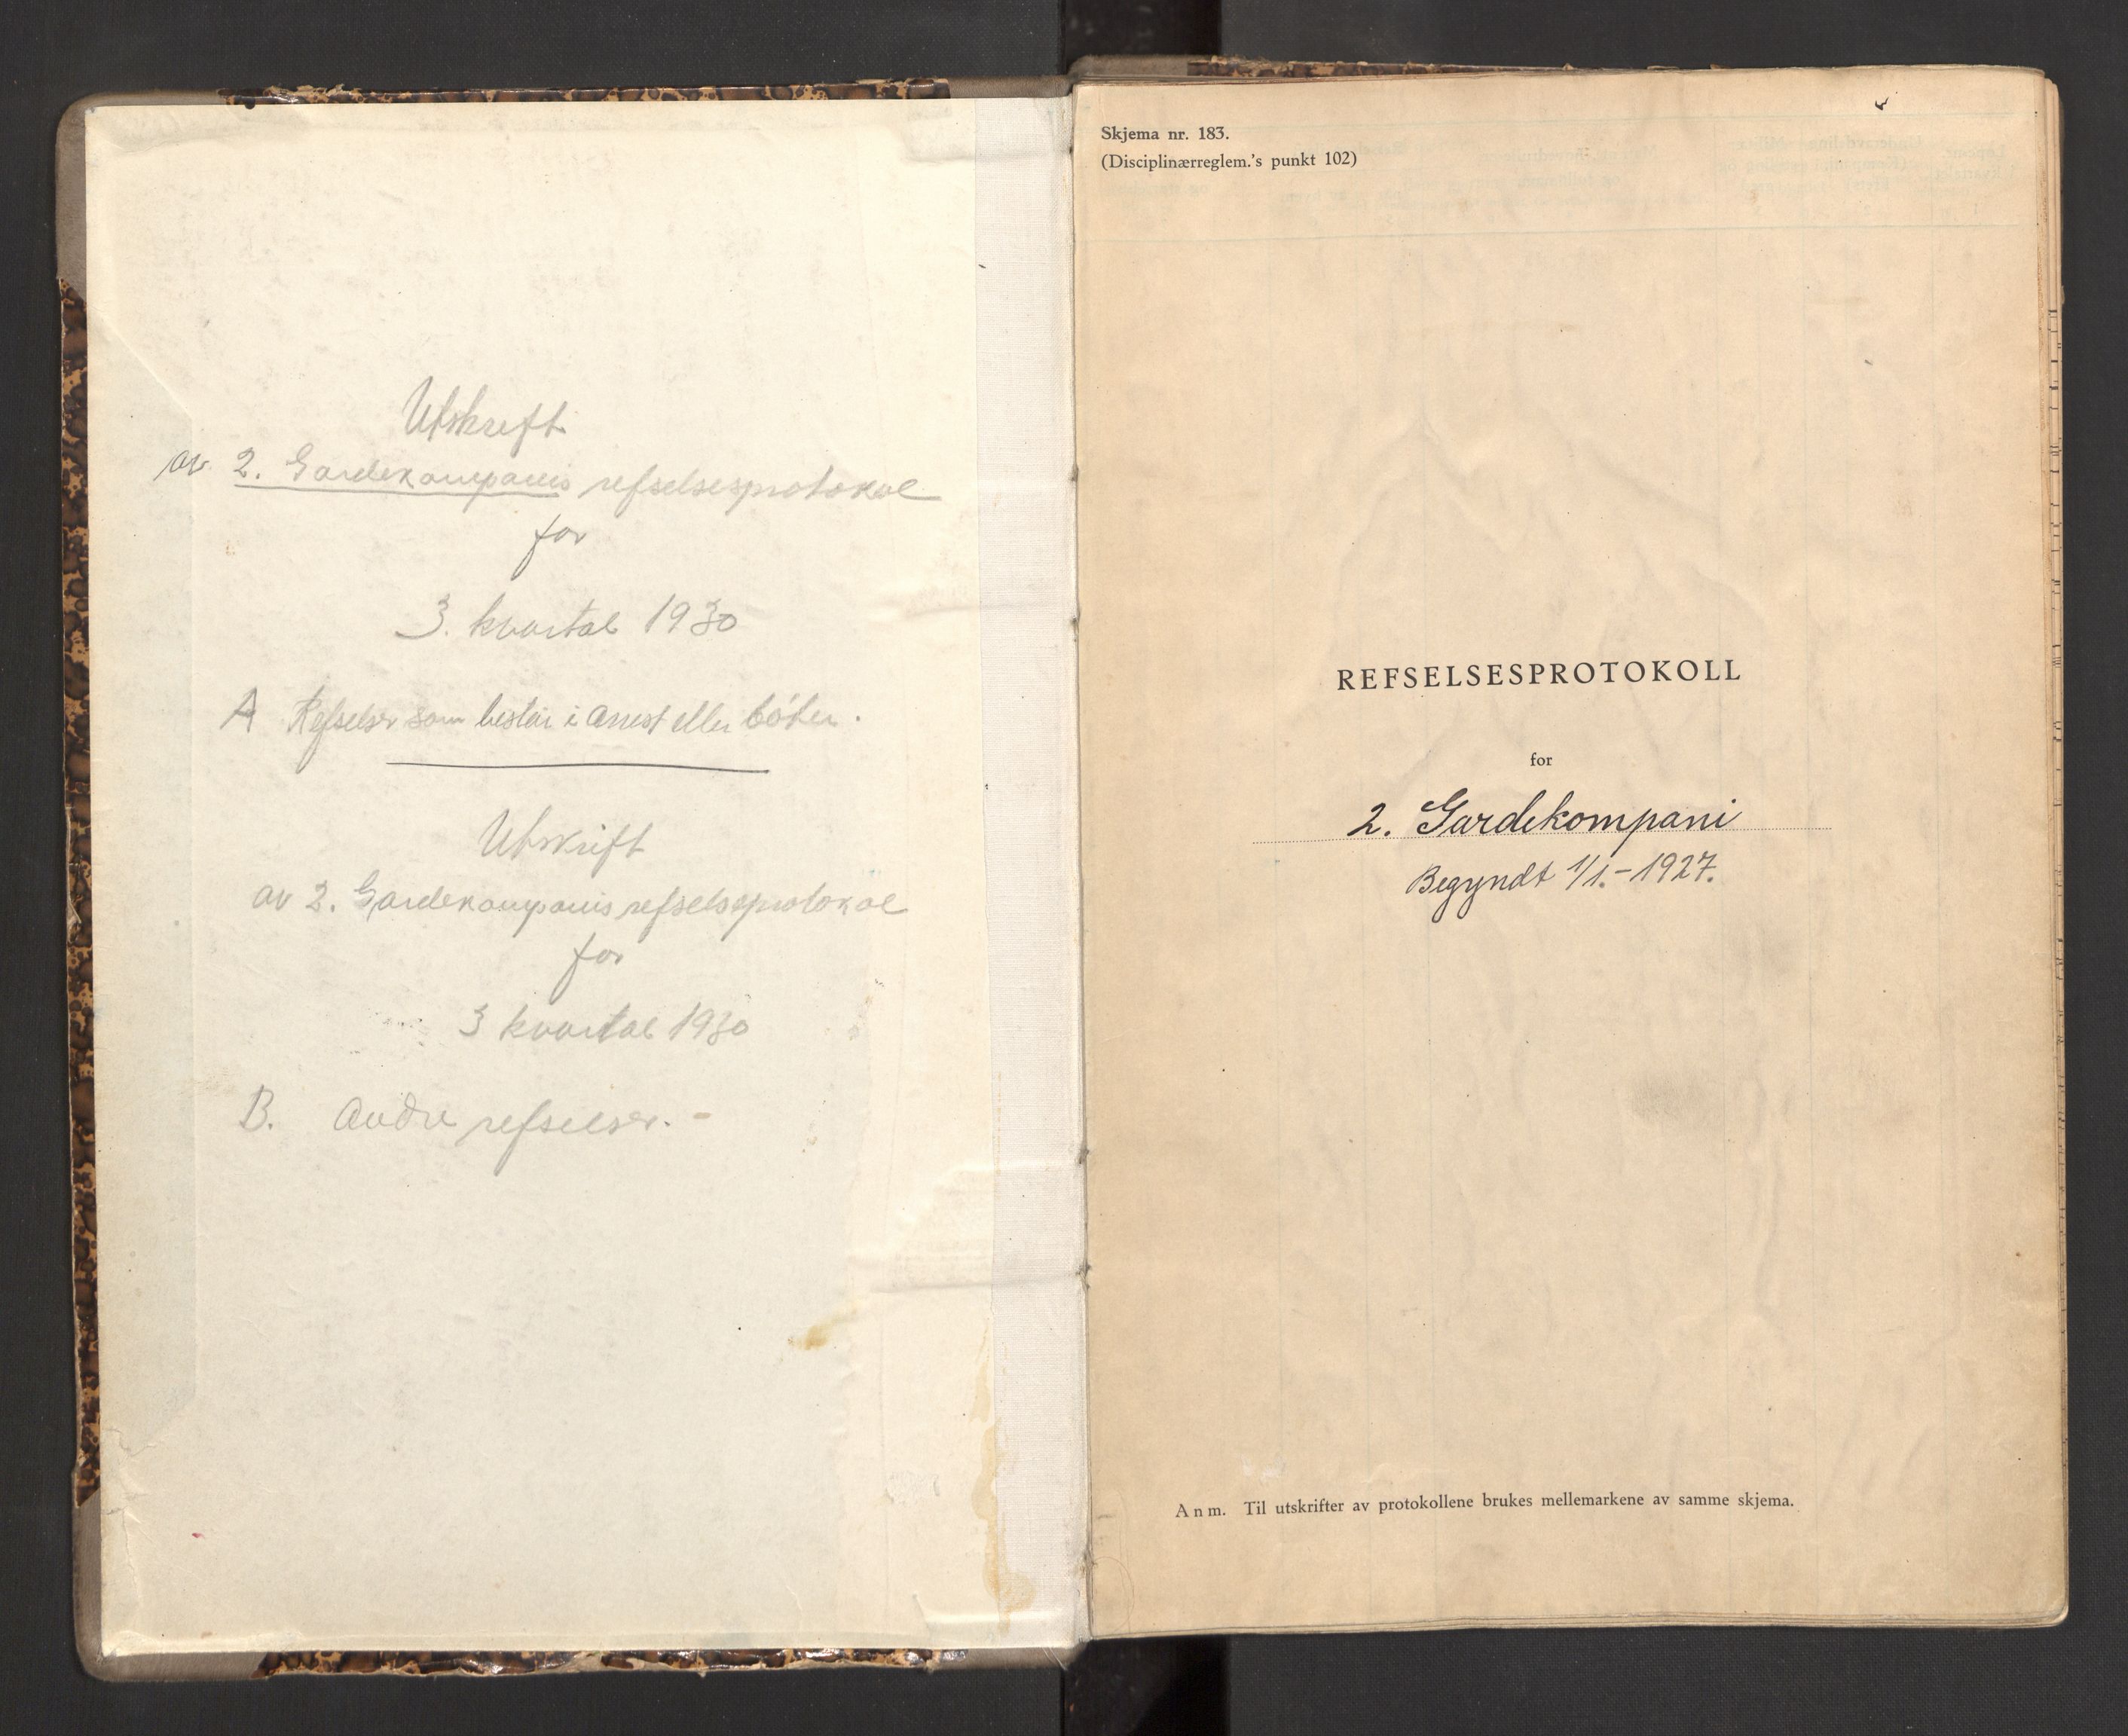 Utskrift
av 2. Gardekompanis refselsesprotokol
for
3. kvartal 1930
A Refselser som består i arrest eller bøter.
Utskrift
av 2. Gardekompanis refselsesprotokol
for
3 kvartal 1930
B. Andre refselser. -
Skjema nr. 183.
(Disciplinærreglem.'s punkt 102)
REFSELSESPROTOKOLL
for
2. Gardekompani
Begyndt 1/1. - 1927.
Anm. Til utskrifter av protokollene brukes mellemarkene av samme skjema.